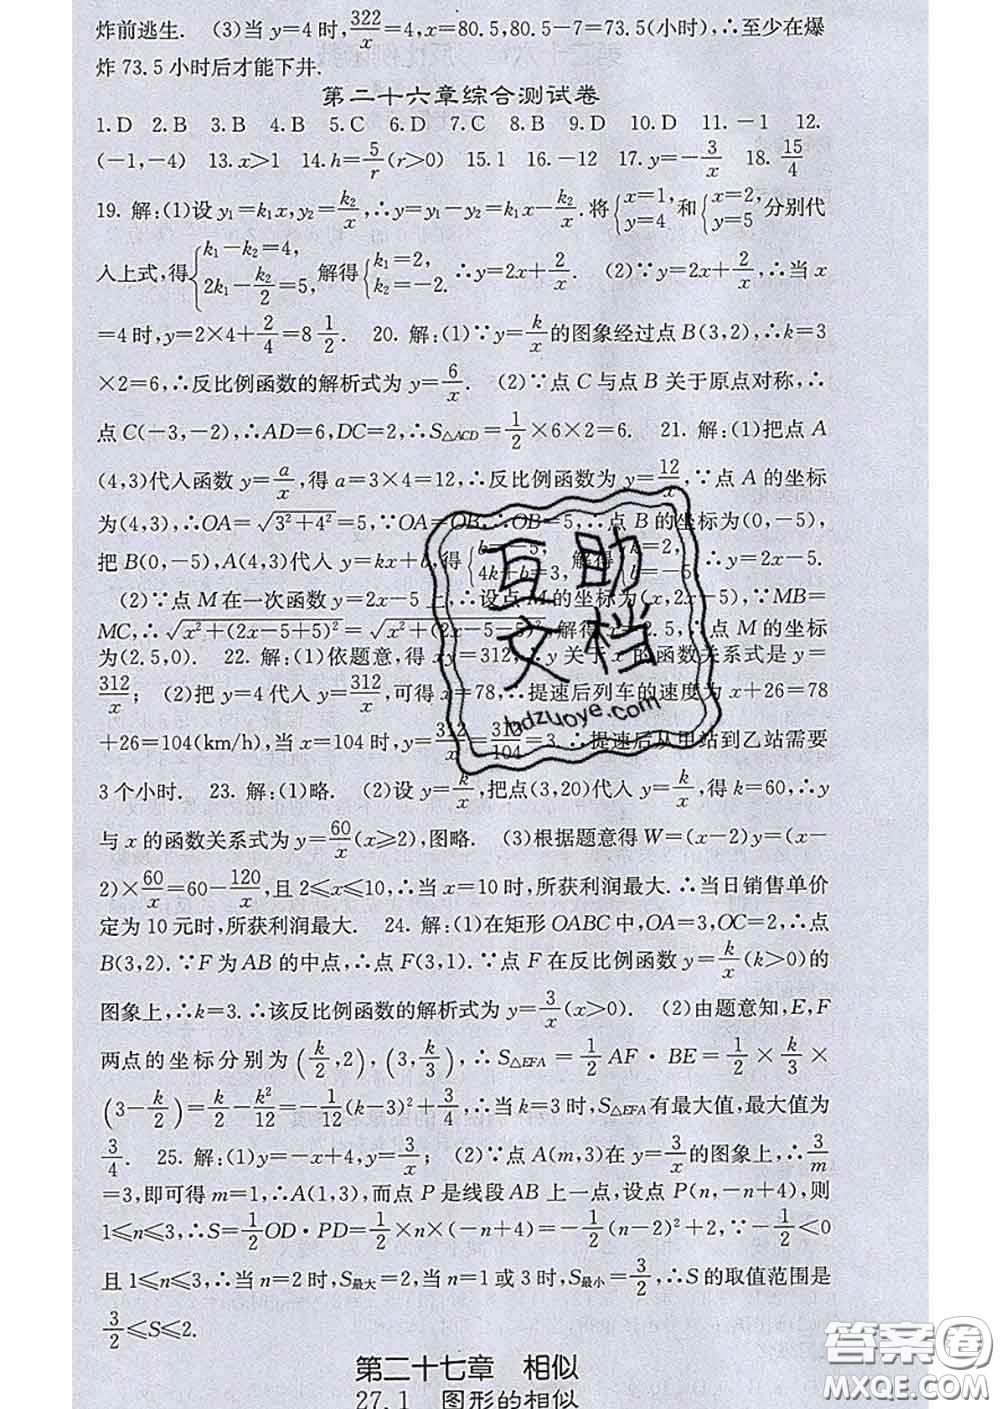 炸前逃生. (3)当 y=4 时,322/x=4,x=80.5,80.5-7=73.5(小时),∴至少在爆
炸 73.5 小时后才能下井.
第二十六章综合测试卷
1.D 2.B 3.B 4.B 5.C 6.D 7.C 8.B 9.D 10.D 11.-1 12.
(-1,-4) 13.x>1 14.h=5/r(r>0) 15.1 16.-12 17.y=-3/x 18.15/4
19. 解:(1)设 y₁=k₁x,y₂=k₂/x,∴y=y₁-y₂=k₁x-k₂/x.将{x=1, y=4 和{x=2, y=5 分别代
入上式,得{k₁-k₂=4, 2k₁-k₂/2=5, 解得{k₁=2, k₂=-2. ∴y=2x+2/x. (2)∵y=2x+2/x,∴当 x
=4 时,y=2×4+2/4=8 1/2. 20. 解:(1)∵y=k/x的图象经过点 B(3,2),∴k=3
×2=6,∴反比例函数的解析式为 y=6/x. (2)∵点 C 与点 B 关于原点对称,∴
点 C(-3,-2),∴AD=6,DC=2,∴S△ACD=1/2×6×2=6. 21. 解:(1)把点 A
(4,3)代入函数 y=a/x,得 a=3×4=12,∴反比例函数为 y=12/x,∵点 A 的坐标
为(4,3),∴OA=√(3²+4²)=5,∵OA=OB,∴OB=5,∴点 B 的坐标为(0,-5),
把 B(0,-5),A(4,3)代入 y=kx+b,得{b=-5, 4k+b=3, 解得{k=2, b=-5. ∴y=2x-5.
(2)∵点 M 在一次函数 y=2x-5 上,∴设点 M 的坐标为(x,2x-5),∵MB=
MC,∴√(x²+(2x-5+5)²)=√(x²+(2x-5-5)²),解得 x=2.5,∴点 M 的坐标
为(2.5,0). 22. 解:(1)依题意,得 xy=312,∴y 关于 x 的函数关系式是 y=
312/x; (2)把 y=4 代入 y=312/x,可得 x=78,∴提速后列车的速度为 x+26=78
+26=104(km/h),当 x=104 时,y=312/x=312/104=3.∴提速后从甲站到乙站需要
3 个小时. 23. 解:(1)略. (2)设 y=k/x,把点(3,20)代入 y=k/x,得 k=60,∴y
与 x 的函数关系式为 y=60/x(x≥2),图略. (3)根据题意得 W=(x-2)y=(x-
2)×60/x=60-120/x,且 2≤x≤10,∴当 x=10 时,所获利润最大.∴当日销售单价
定为 10 元时,所获利润最大. 24. 解:(1)在矩形 OABC 中,OA=3,OC=2,∴点
B(3,2).∵F 为 AB 的中点,∴点 F(3,1).∵点 F 在反比例函数 y=k/x(k>0)的
图象上,∴k=3.∴该反比例函数的解析式为 y=3/x(x>0). (2)由题意知,E,F
两点的坐标分别为(k/2,2),(3,k/3),∴S△EFA=1/2 AF·BE=1/2×k/3×
(3-k/2)=k/2-k²/12=-1/12(k-3)²+3/4,∴当 k=3 时,S△EFA 有最大值,最大值为
3/4. 25. 解:(1)y=-x+4,y=3/x; (2)∵点 A(m,3)在 y=3/x的图象上,∴3/m
=3,即可得 m=1,∴A(1,3),而点 P 是线段 AB 上一点,设点 P(n,-n+4),则
1≤n≤3,∴S=1/2OD·PD=1/2×n×(-n+4)=-1/2(n-2)²+2,∵-1/2<0
且 1≤n≤3,∴当 n=2 时,S最大=2,当 n=1 或 3 时,S最小=3/2,∴S 的取值范围是
3/2≤S≤2.
第二十七章 相似
27.1 图形的相似
互助
文档
bdzuoye.com
答案圈
MXQE.COM